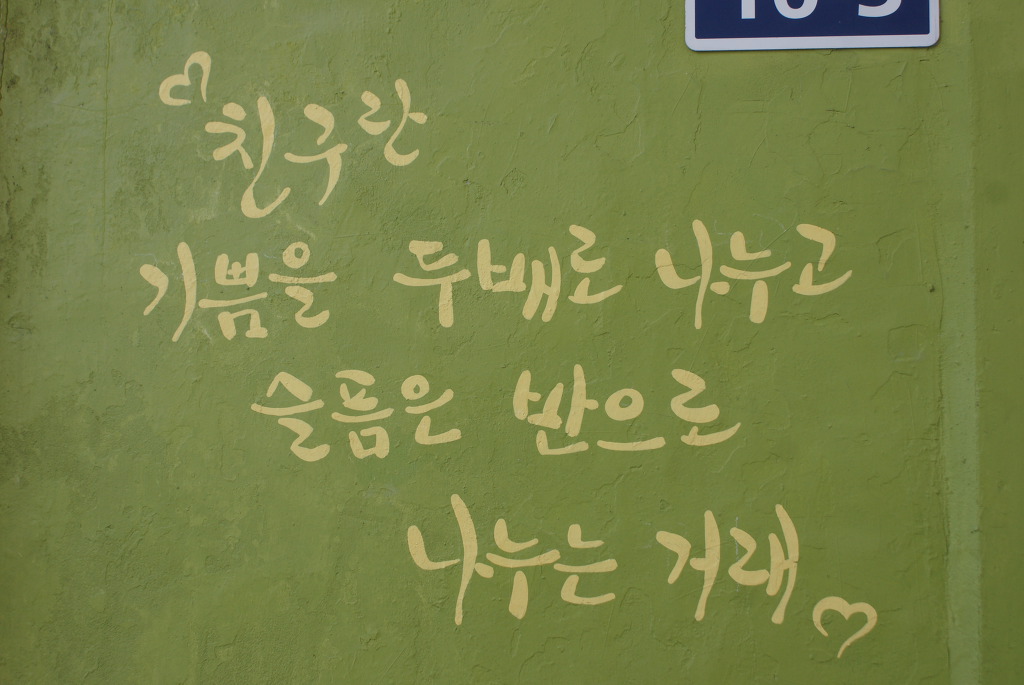 친구란
기쁨을 두배로 나누고
슬픔은 반으로
나누는 거래